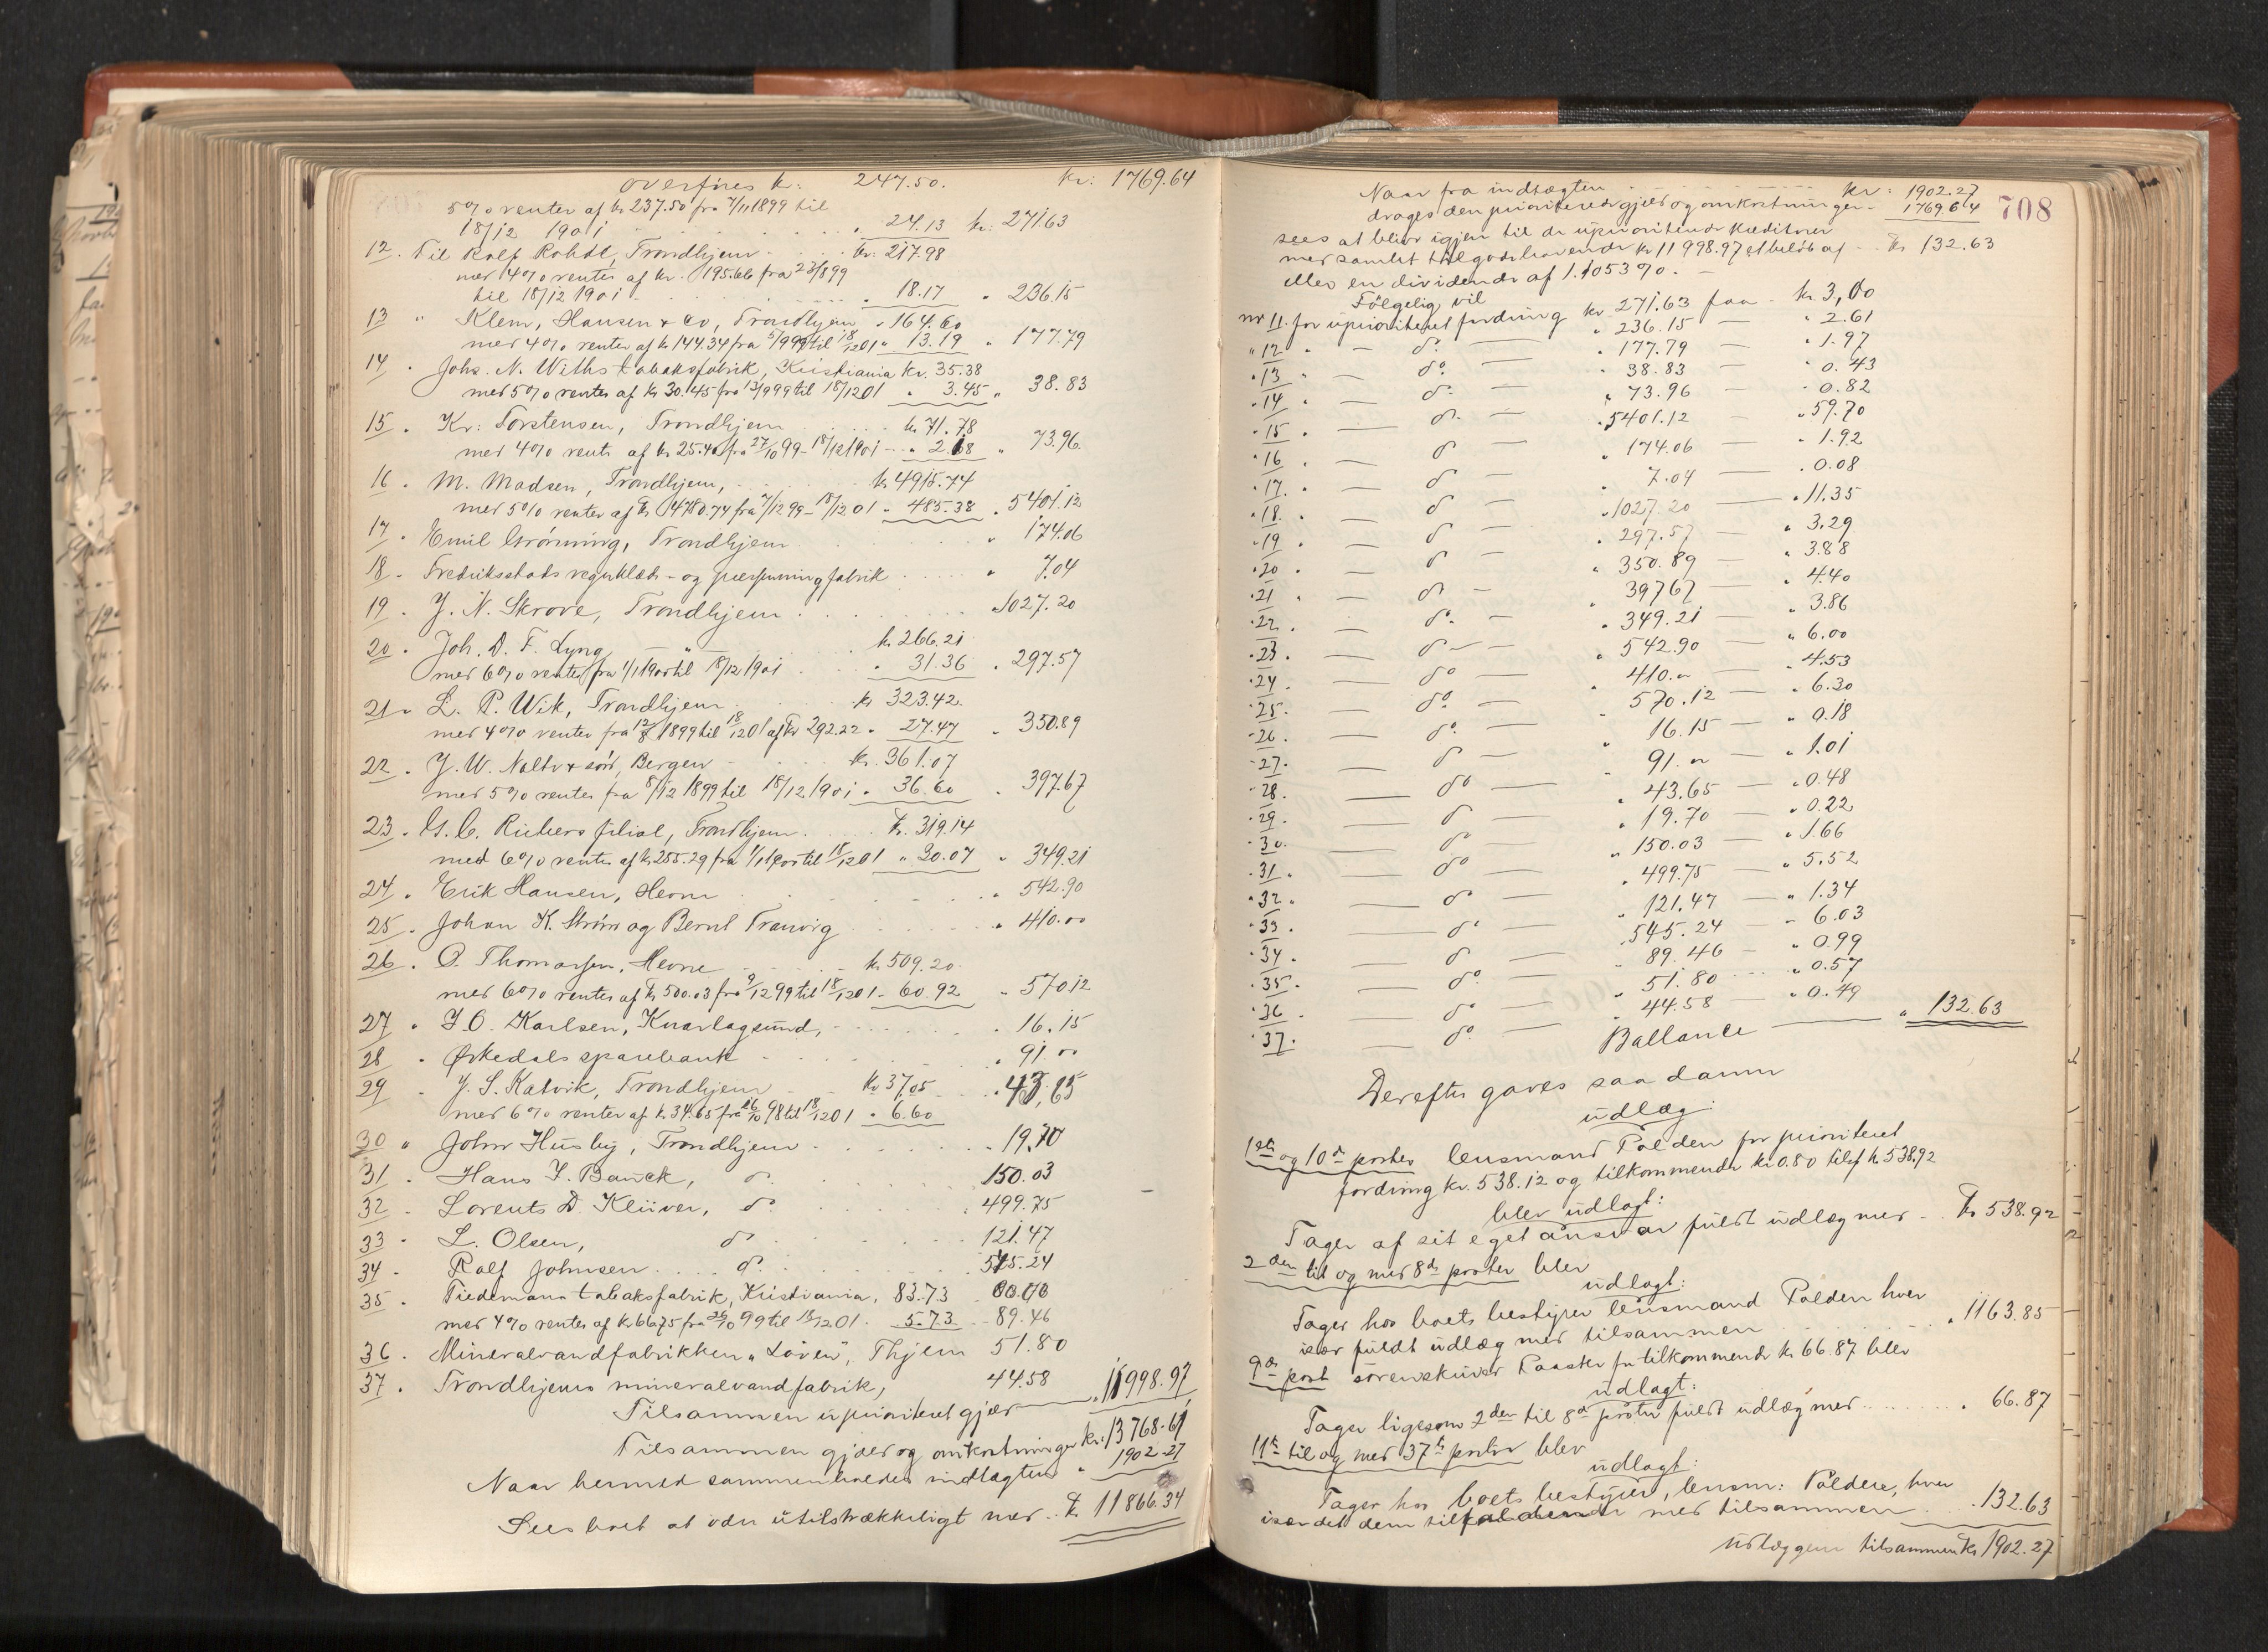 overføres kr: 247.50. kr: 1769.64
5% renter af kr 237.50 fra 7/11 1899 til
18/12 1901 " 24.13 kr: 271.63
12. Til Rolf Rohdt, Trondhjem kr: 217.98
med 4% renter af kr. 195.66 fra 23/8 99
til 18/12 1901 " 18.17 " 236.15
13 " Klem, Hansen & Co, Trondhjem " 164.60
med 4% renter af kr 144.34 fra 5/9 99 til 18/12 01 " 13.19 " 177.79
14 . Johs. N. Withs tobaksfabrik, Kristiania kr. 35.38
med 5% renter af kr 30.45 fra 13/9 99 til 18/12 01 " 3.45 " 38.83
15 . Kr: Torstensen, Trondhjem kr. 71.78
med 4% rente af kr 25.40 fra 27/10 99 - 18/12 1901 " 2.18 " 73.96.
16 . M. Madsen, Trondhjem, kr 4915.74
med 5% renter af kr 4780.74 fra 7/12 99 - 18/12 01 " 485.38 " 5401.12
17 . Emil Grønning, Trondhjem " 174.06
18 . Fredriksstads regnklæde- og presenningfabrik " 7.04
19 . J. N. Skrove, Trondhjem " 1027.20
20 . Joh. D. F. Lyng — " — kr 266.21
med 6% renter fra 1/1 1900 til 18/12 1901 " 31.36 " 297.57
21 " L. P. Wik, Trondhjem kr 323.42.
med 4% renter fra 12/8 1899 til 18/12 01 af kr 292.22 " 27.47 " 350.89
22 . J. W. Nolte & søn, Bergen kr. 361.07
med 5% renter fra 8/12 1899 til 18/12 1901 " 36.60 " 397.67
23 . G. C. Riebers filial, Trondhjem kr. 319.14
med 6% renter af kr 255.29 fra 1/1 1900 til 18/12 01 " 30.07 " 349.21
24 . Erik Hansen, Hevne " 542.90
25 . Johan K. Strøm og Bernt Tranvig " 410.00
26 . O. Thomassen, Hevne kr 509.20
med 6% renter af kr 500.03 fra 9/12 99 til 18/12 01 " 60.92 " 570.12
27 . J. O. Karlsen, Kvarlagsund, " 16.15
28 . Ørkedals sparebank " 91.00
29 . J. S. Katvik, Trondhjem kr 37.05 " 43.65
med 6% renter af kr 34.65 fra 16/10 98 til 18/12 01 " 6.60
30 " John Husby, Trondhjem " 19.70
31 . Hans J. Banck, do 150.03
32 . Lorents D. Klüver, do 499.75
33 . L. Olsen, do 121.47
34 . Rolf Johnsen do 545.24
35 . Tiedemans tobaksfabrik, Kristiania, 83.73
med 4% renter af kr 66.75 fra 26/10 99 til 18/12 01 5.73 89.46
36 . Mineralvandfabrikken "Løven", Thjem 51.80
37 . Trondhjems mineralvandfabrik, 44.58
Tilsammen uprioriteret gjæld " 11998.97
Tilsammen gjæld og omkostninger kr: 13768.61
Naar hermed sammenholdes indtægten " 1902.27
Sees boet at være utilstrækkeligt med kr 11866.34
708
Naar fra indtægten kr: 1902.27
drages den prioriterede gjæld og omkostninger 1769.64
sees at blive igjen til de uprioriterede kreditorer
med samlet tilgodehavende kr 11998.97 et beløb af kr 132.63
eller en dividende af 1.1053%.
Følgelig vil
nr 11. for uprioriteret fordring kr 271.63 faa kr. 3,00
" 12 " — do — " 236.15 — " 2.61
" 13 " — do — " 177.79 — " 1.97
" 14 " — do — " 38.83 — " 0.43
" 15 " — do — " 73.96 — " 0.82
" 16 " — do — " 5401.12 — " 59.70
" 17. — do — " 174.06 — " 1.92
" 18. — do — " 7.04 — " 0.08
" 19 " — do — " 1027.20 — " 11.35
" 20 . — do — " 297.57 — " 3.29
" 21 " — do — " 350.89 — " 3.88
" 22 . — do — " 397.67 — " 4.40
" 23 . — do — " 349.21 — " 3.86
" 24 . — do — " 542.90 — " 6.00
" 25. — do — " 410.00 — " 4.53
" 26. — do — " 570.12 — " 6.30
" 27. — do — " 16.15 — " 0.18
" 28. — do — " 91.00 — " 1.01
" 29. — do — " 43.65 — " 0.48
" 30. — do — " 19.70 — " 0.22
" 31. — do — " 150.03 — " 1.66
" 32 " — do — " 499.75 — " 5.52
" 33. — do — " 121.47 — " 1.34
" 34. — do — " 545.24 — " 6.03
" 35. — do — " 89.46 — " 0.99
" 36 — do — " 51.80 — " 0.57
" 37. — do — " 44.58 — " 0.49
Ballance — " 132.63
Derefter gaves saadanne
udlæg:
1ste og 10de poster lensmand Polden for prioriteret
fordring kr. 538.12 og tilkommende kr 0.80 tils. kr 538.92
blev udlagt:
Tager af sit eget ansvar fuldt udlæg med kr 538.92
2den til og med 8de poster blev
udlagt:
Tager hos boets bestyrer lensmand Polden hver
især fuldt udlæg med tilsammen " 1163.85
9de post sorenskriver tilkommende kr 66.87 blev
udlagt:
Tager ligesom 2den til 8de poster fuldt udlæg med " 66.87
11te til og med 37te poster blev
udlagt:
Tager hos boets bestyrer, lensm: Polden, hver
især det dem tilfaldende med tilsammen " 132.63
Udlæggene tilsammen kr 1902.27